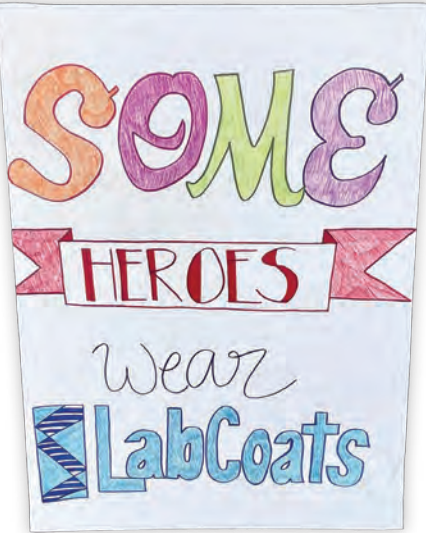 SOME
HEROES
wear
LabCoats